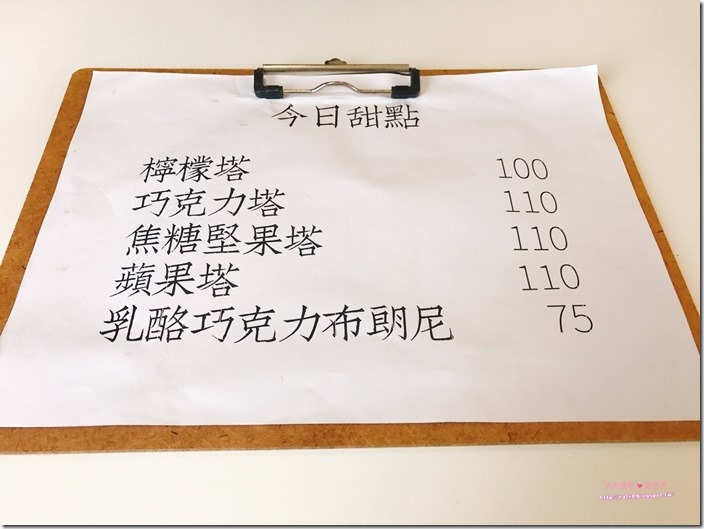 今日甜點
檸檬塔 100
巧克力塔 110
焦糖堅果塔 110
蘋果塔 110
乳酪巧克力布朗尼 75